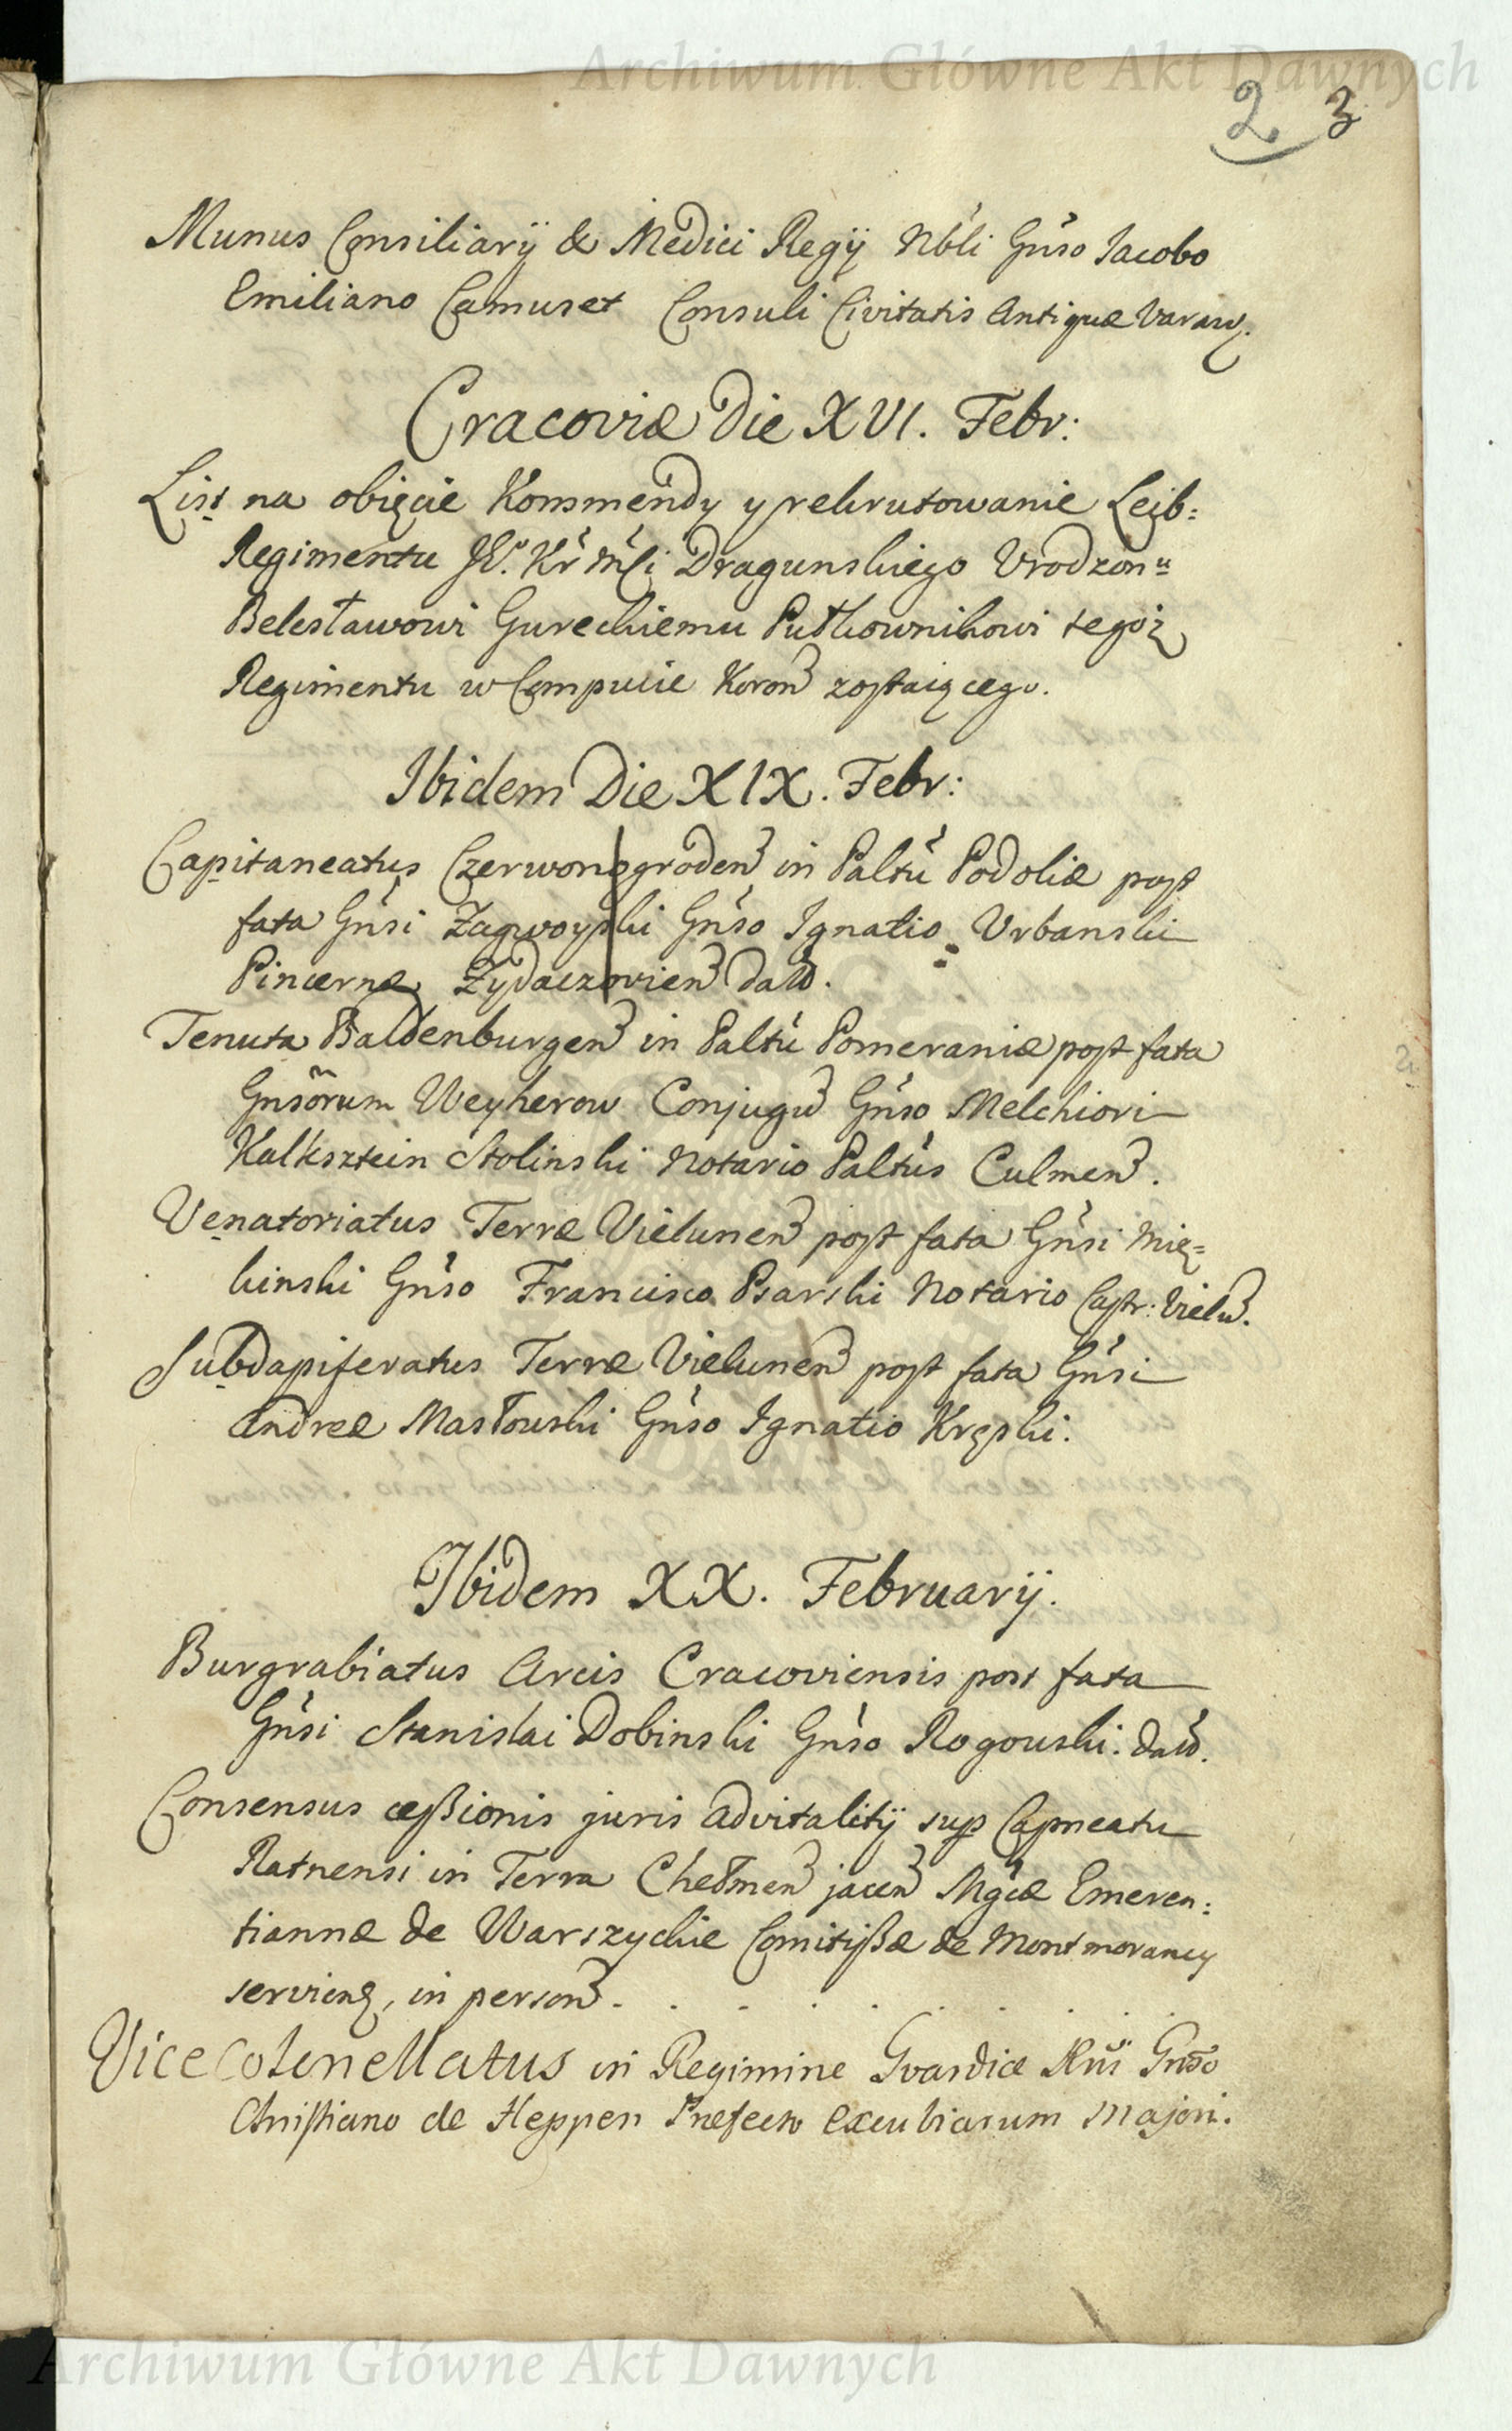 Archiwum Główne Akt Dawnych
2 3
Munus Consiliarÿ & Medici Regÿ Nbli Gnso Iacobo
Emiliano Camuset Consuli Civitatis Antiquæ Varaw.
Cracoviæ Die XVI. Febr:
List na obięcie Kommendy y rekrutowanie Leib=
Regimentu Dragunskiego Vrodzonu
Belesławowi Gureckiemu Pułkownikowi tegoż
Regimentu w Compucie Koron zostaiącego.
Ibidem Die XIX. Febr:
Capitaneatus Czerwonogroden in Paltu Podoliæ post
fata Gnsi Zagwoyski Gnso Ignatio Vrbanski
Pincernæ Zydaczowien dat.
Tenuta Baldenburgen in Paltu Pomeraniæ post fata
Gnsorum Weyherow Conjugu Gnso Melchiori
Kalksztein Stolinski Notario Paltus Culmen.
Venatoriatus Terræ Vielunen post fata Gnsi Mię=
kinski Gnso Francisco Psarski Notario Castr: Vielu.
Subdapiferatus Terræ Vielunen post fata Gnsi
Andreæ Masłouski Gnso Ignatio Kręski.
Ibidem XX. Februarÿ.
Burgrabiatus Arcis Cracoviensis post fata
Gnsi Stanislai Dobinski Gnso Rogouski. dat.
Consensus ceßionis juris advitalitÿ sup Capneatu
Ratnensi in Terra Chełmen jacen Mgcæ Emeren:
tiannæ de Warszyckie Comitißæ de Montmorancy
servien, in person. . . . . . . . .
Vice Colonellatus in Regimine Gvardiæ Gnso
Christiano de Heppen Præfecto excubiarum Majori.
Archiwum Główne Akt Dawnych